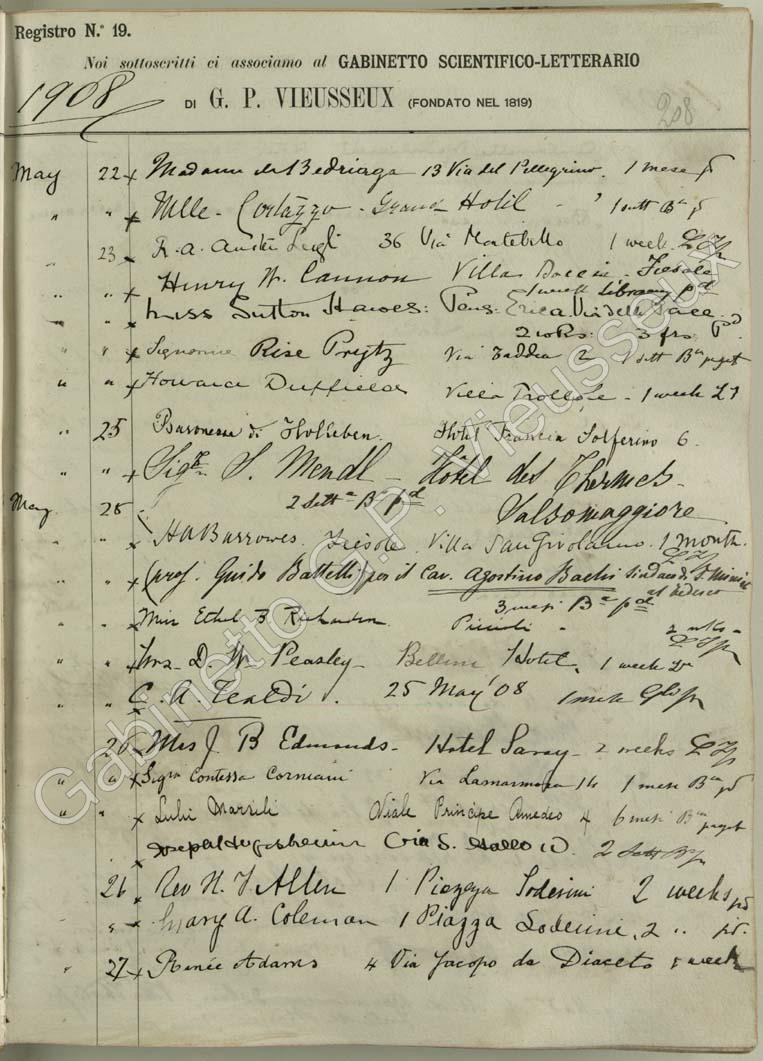 Registro N.° 19.
Noi sottoscritti ci associamo al GABINETTO SCIENTIFICO-LETTERARIO
1908
DI G. P. VIEUSSEUX (FONDATO NEL 1819)
208
May 22 x Madame de Bedriaga 13 Via del Pellegrino. 1 mese pd
" " x Mlle. Cortazzo - Grand Hotel - 1 sett Bna pd
" 23 x R. A. 36 Via Montebello 1 week
" " x Henry W. Cannon Villa Doccia - Fiesole
1 week Library pd
" x Miss Sutton Hawes: Pens: Erica. Via delle
2 wks: 3 frs pd
" " x Rise Via Taddea 2 1 sett Bna pagat
" " x Howard Duffield Villa Trollope - 1 week
" 25 Baronessa di Holleben. Hotel Francia Solferino 6.
" " x Sigr S. Mendl - Hôtel des Thermes -
2 Setta Ba pd Salsomaggiore
May 25
" H A Burrowes. Fiesole. Villa San Girolamo. 1 month.
" " x Prof. Guido Battelli per il Cav. Agostino Bachi Sindaco di S. Miniato
al Tedesco
3 mesi Ba pd
" " x Miss Ethel B Richardson. Piccioli - 2 wks -
" " x Mrs. D. W. Peasley - Bellini Hotel, 1 week
" " x C. A. Tealdi. 25 May '08 1 mese
26 x Mrs J. B Edmonds - Hotel Savoy - 2 weeks
" " x Sigra Contessa Corniani Via Lamarmora 14 1 mese Bna pd
" " x Marsili Viale Principe Amedeo 4 6 mesi Bna pagat
x Joseph 10. 2 Sett
26 x Rev H. J. Allen 1 Piazza Soderini 2 weeks pd
" x Mary A. Coleman 1 Piazza Soderini, 2 " pd.
" 27 x Renée Adams 4 Via Jacopo da Diaceto week
Gabinetto G.P. Vieusseux